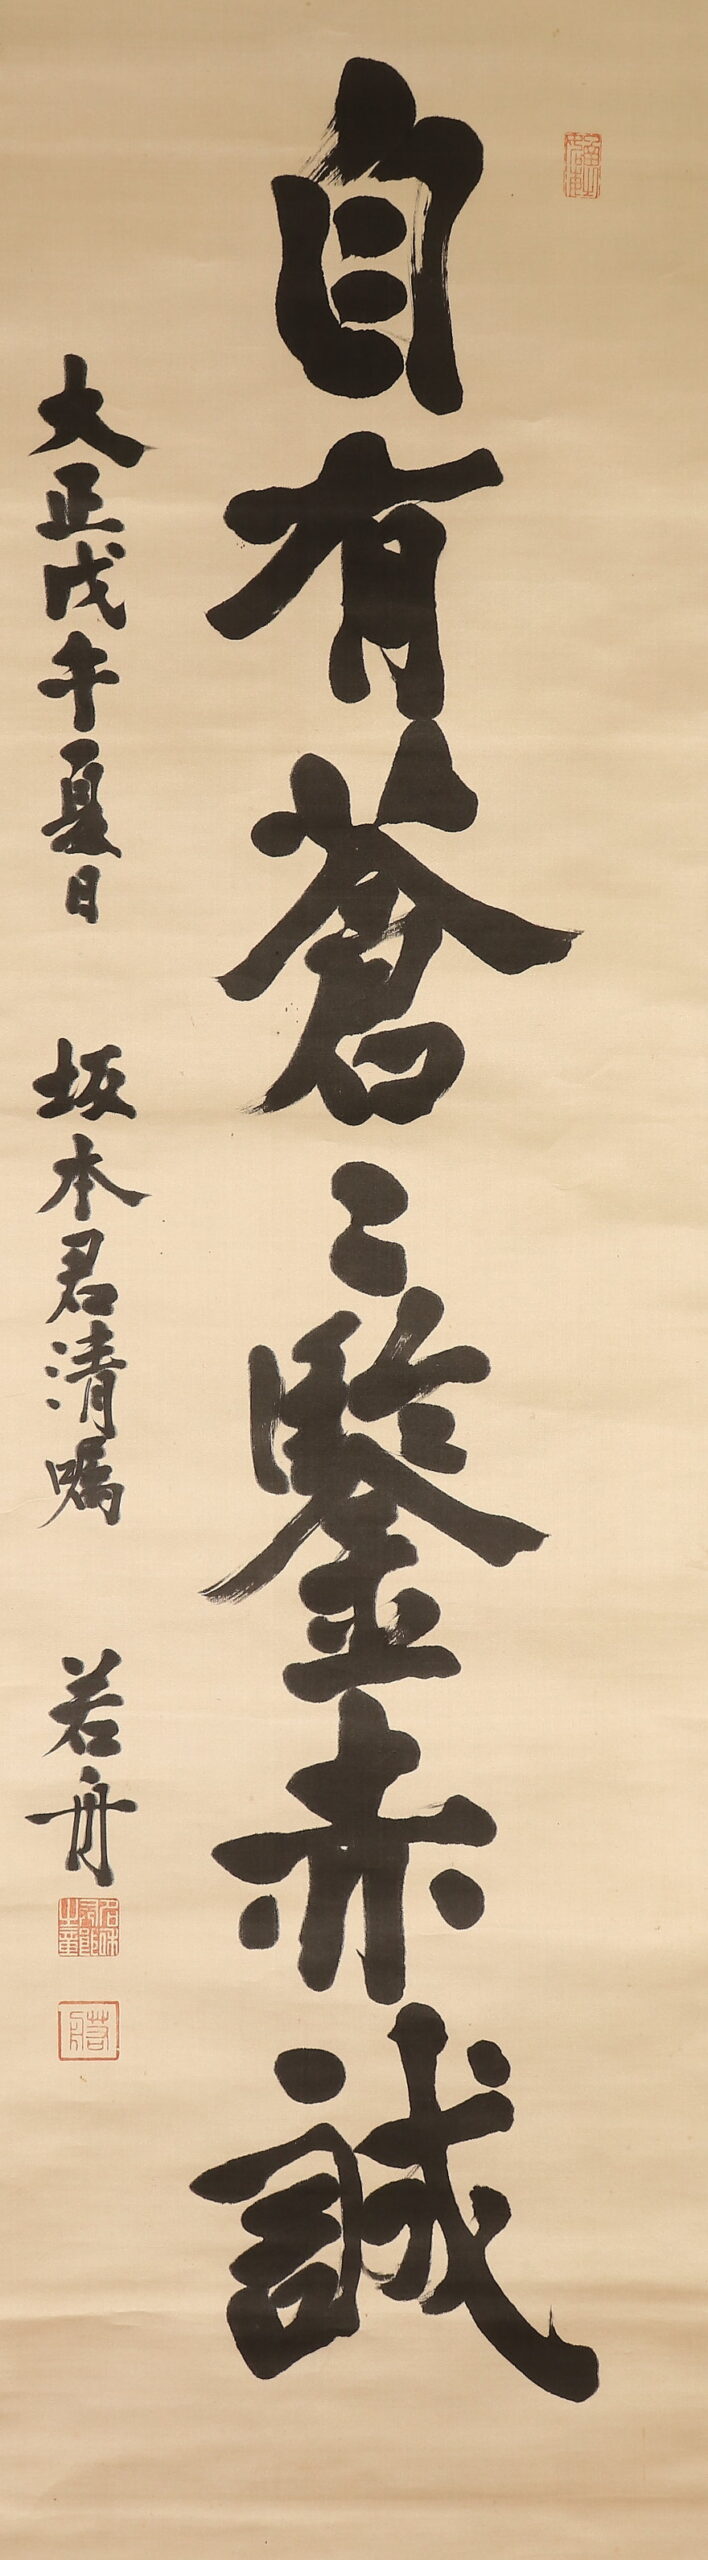 自有蒼々鑒赤誠
大正戊午夏日 坂本君清嘱 若舟